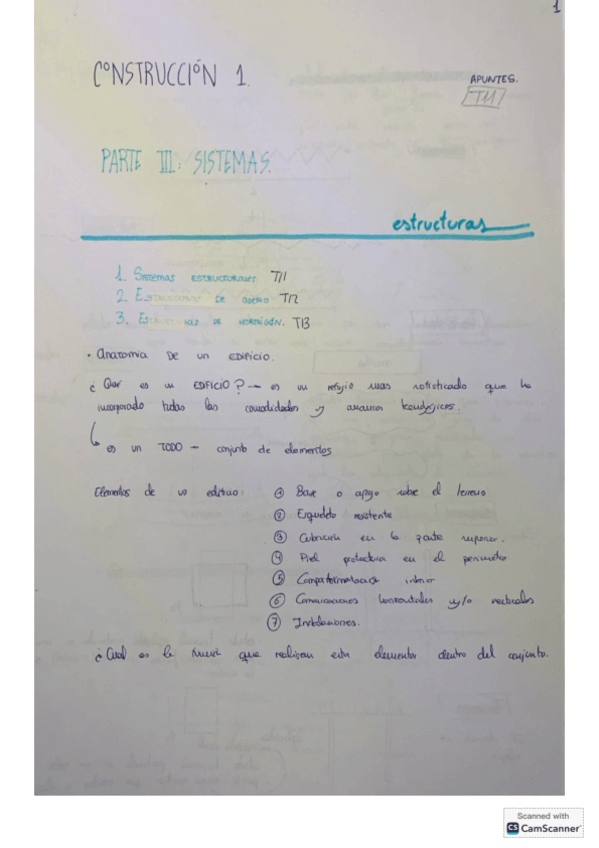 1
CONSTRUCCIÓN 1.
APUNTES.
T11
PARTE III: SISTEMAS.
estructuras
1. Sistemas ESTRUCTURALES T11
2. DE ACERO T12
3. DE HORMIGÓN. T13
• Anatomía DE UN EDIFICIO.
¿ Qué es un EDIFICIO? → es un refugio mas sofisticado que ha
incorporado todas las comodidades y avances tecnológicos.
es un TODO — conjunto de elementos
Elementos de un edificio:
① Base o apoyo sobre el terreno
② Esqueleto resistente
③ Cubrición en la parte superior.
④ Piel protectora en el perímetro
⑤ Compartimentación interior
⑥ Comunicaciones horizontales y/o verticales
⑦ Instalaciones.
¿ Cual es la que realizan elementos dentro del conjunto.
Scanned with
CS CamScanner